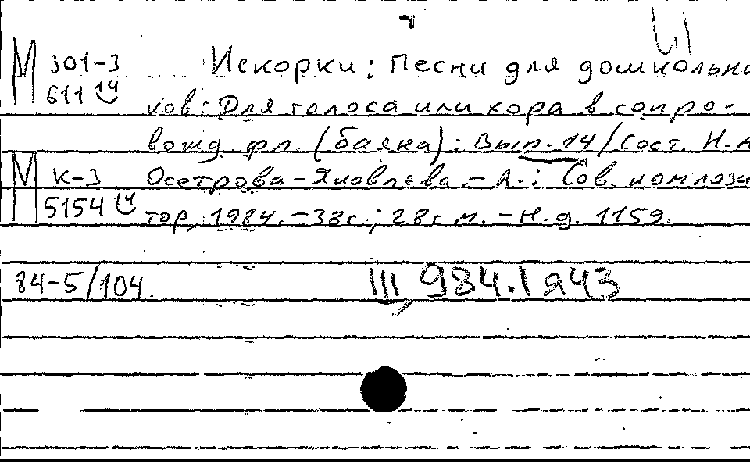 И
М 301-3 Искорки: Песни для дошкольни-
611 ков: Для голоса или хора в сопро-
вожд. фп. (баяна): Вып. 14/Сост. Н.
М К-3 Осетрова-Яковлева. - Л.: Сов. компози-
5154 тор, 1984. - 38с.; 28см. - Н.д. 1159.
84-5/104 III 984.1